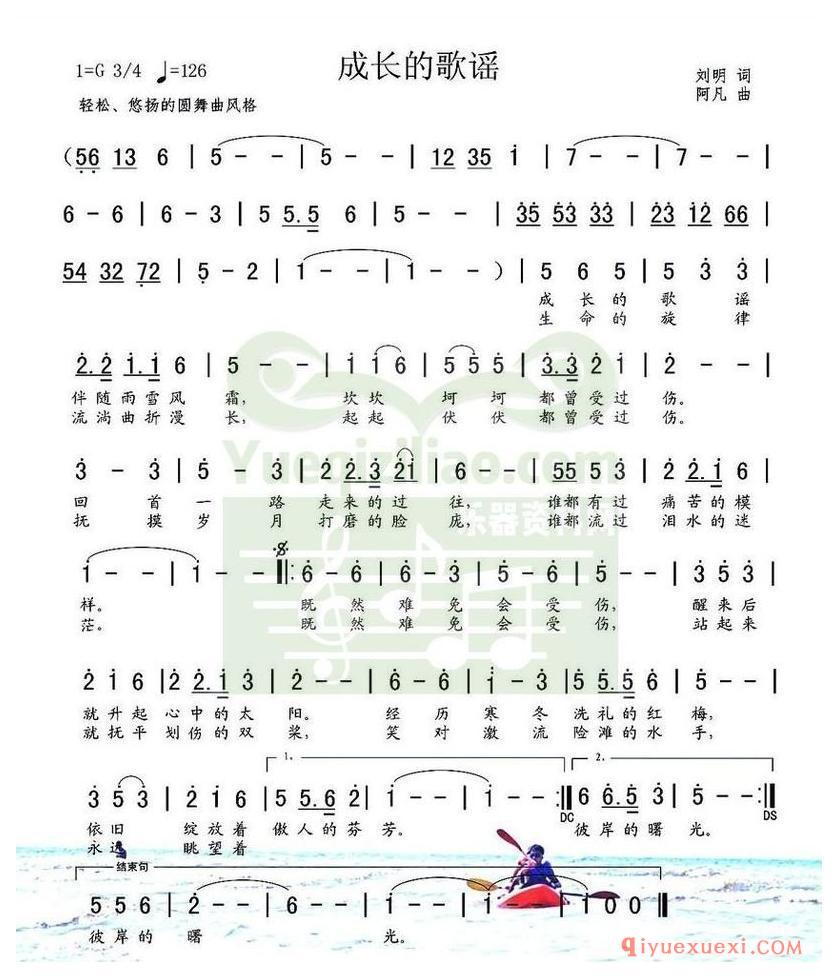 成长的歌谣
1=G 3/4 ♩=126
刘明 词
轻松、悠扬的圆舞曲风格
阿凡 曲
(56 13 6 | 5 - - | 5 - - | 12 35 i | 7 - - | 7 - - |
6 - 6 | 6 - 3 | 5 5.5 6 | 5 - - | 35 53 33 | 23 12 66 |
54 32 72 | 5 - 2 | 1 - - | 1 - - ) | 5 6 5 | 5 3 3 |
成 长 的 歌 谣
生 命 的 旋 律
2.2 1.1 6 | 5 - - | i i 6 | 5 5 5 | 3.3 2 1 | 2 - - |
伴随雨雪风 霜, 坎坎 坷坷 都曾受过 伤。
流淌曲折漫 长, 起起 伏伏 都曾受过 伤。
3 - 3 | 5 - 3 | 2 2.3 2i | 6 - - | 55 5 3 | 2 2.1 6 |
回 首 一 路 走来的过 往, 谁都有过 痛苦的模
抚 摸 岁 月 打磨的脸 庞, 谁都流过 泪水的迷
1 - - | 1 - - 𝄋 ‖: 6 - 6 | 6 - 3 | 5 - 6 | 5 - - | 3 5 3 |
样。 既 然 难 免 会 受 伤, 醒来后
茫。 既 然 难 免 会 受 伤, 站起来
2 1 6 | 2 2.1 3 | 2 - - | 6 - 6 | i - 3 | 5 5.5 6 | 5 - - |
就升起 心中的太 阳。 经 历 寒 冬 洗礼的红 梅,
就抚平 划伤的双 桨, 笑 对 激 流 险滩的水 手,
1、
2、
3 5 3 | 2 1 6 | 5 5.6 2 | 1 - - | 1 - - :‖ 6 6.5 3 | 5 - - :‖
DC
DS
依旧 绽放着 傲人的芬 芳。 彼岸的曙 光。
永远 眺望着
结束句
5 5 6 | 2 - - | 6 - - | 1 - - | 1 - - | 1 0 0 ‖
彼岸的 曙 光。
Yueqiziliao.com
乐器资料网
qiyuexuexi.com